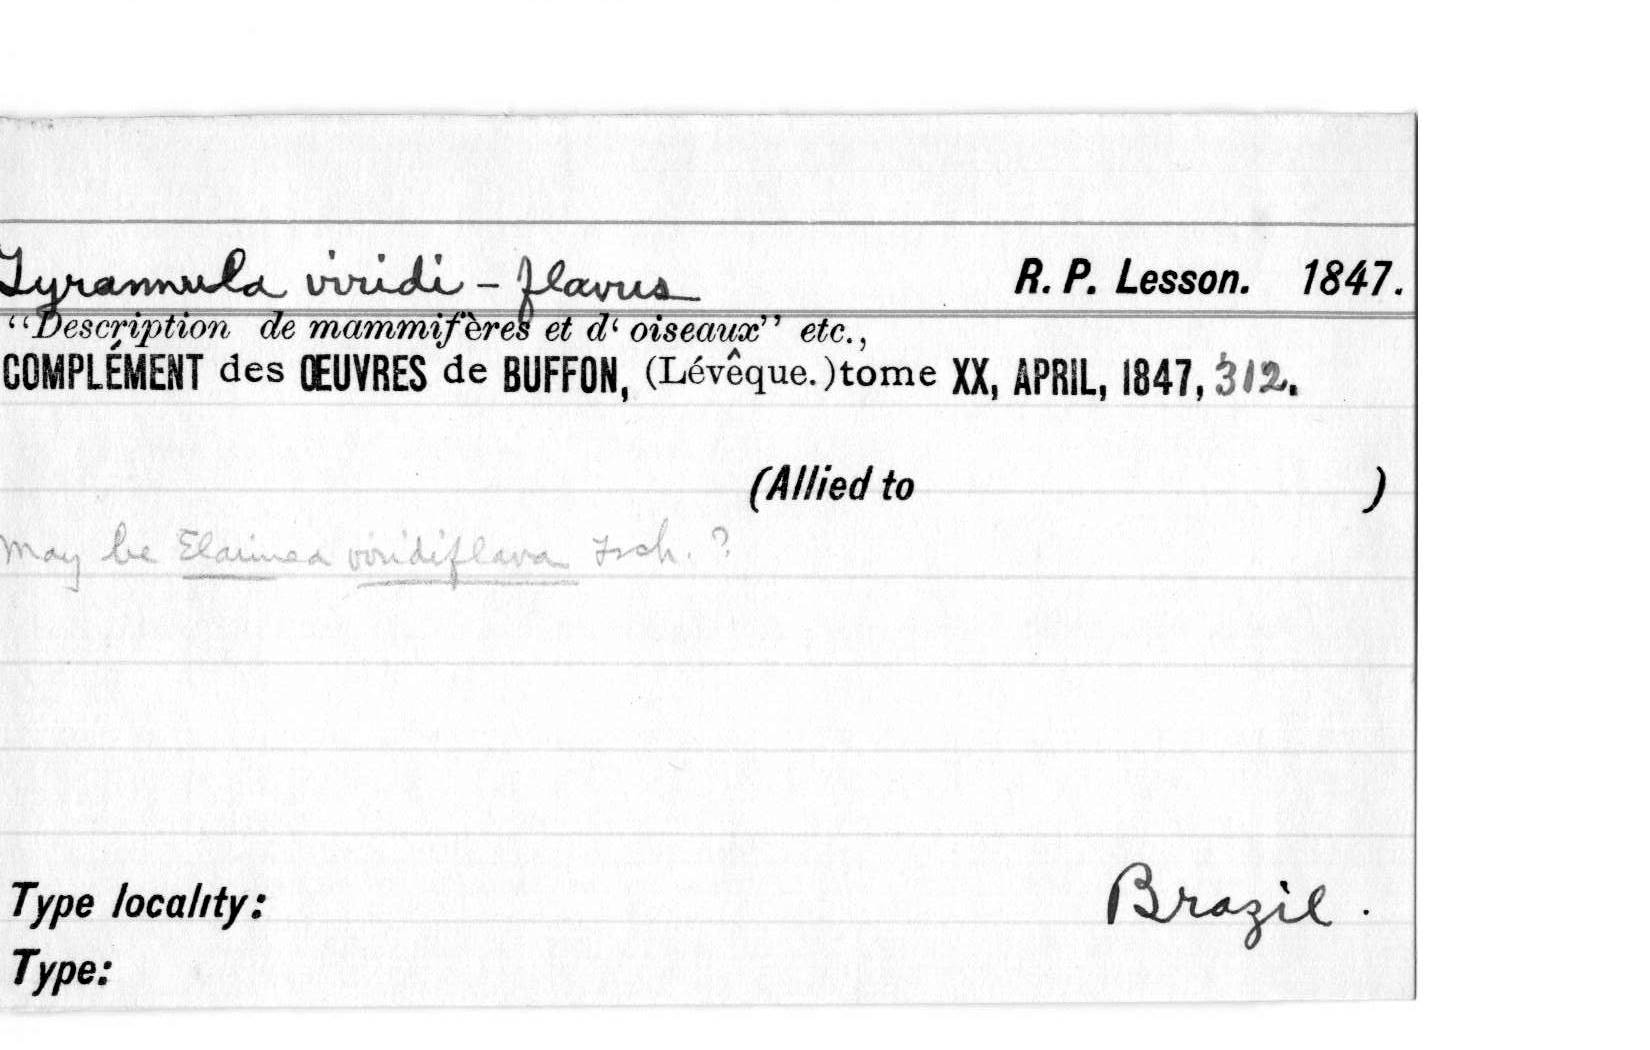 Tyrannula viridi-flavus R. P. Lesson. 1847.
“Description de mammifères et d‘ oiseaux” etc.,
COMPLÉMENT des ŒUVRES de BUFFON, (Lévêque.) tome XX, APRIL, 1847, 312.
(Allied to )
May be Elainea viridiflava Tsch. ?
Type locality: Brazil.
Type: